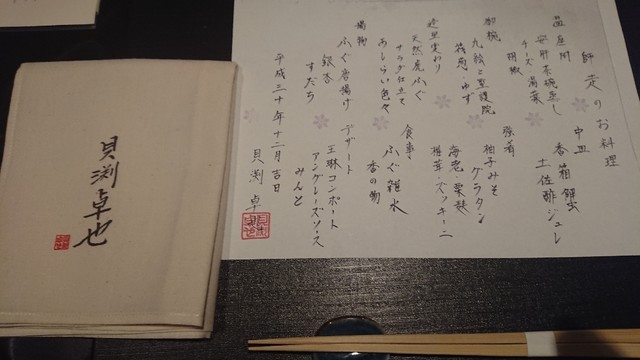 師走のお料理
温座附
安肝茶碗蒸し
チーズ 湯葉
胡椒
御椀
九絵と聖護院
筍芋 ゆず
造里変わり
天然虎ふぐ
サラダ仕立て
あしらい色々
揚物
ふぐ唐揚げ
銀杏
すだち
中皿
香箱蟹
土佐酢ジュレ
強肴
柚子みそ
グラタン
海老・粟麩
椎茸・ズッキーニ
食事
ふぐ雑水
香の物
デザート
王琳コンポート
アングレーズソース
みんと
平成三十年十二月吉日
貝渕卓也
貝渕卓也